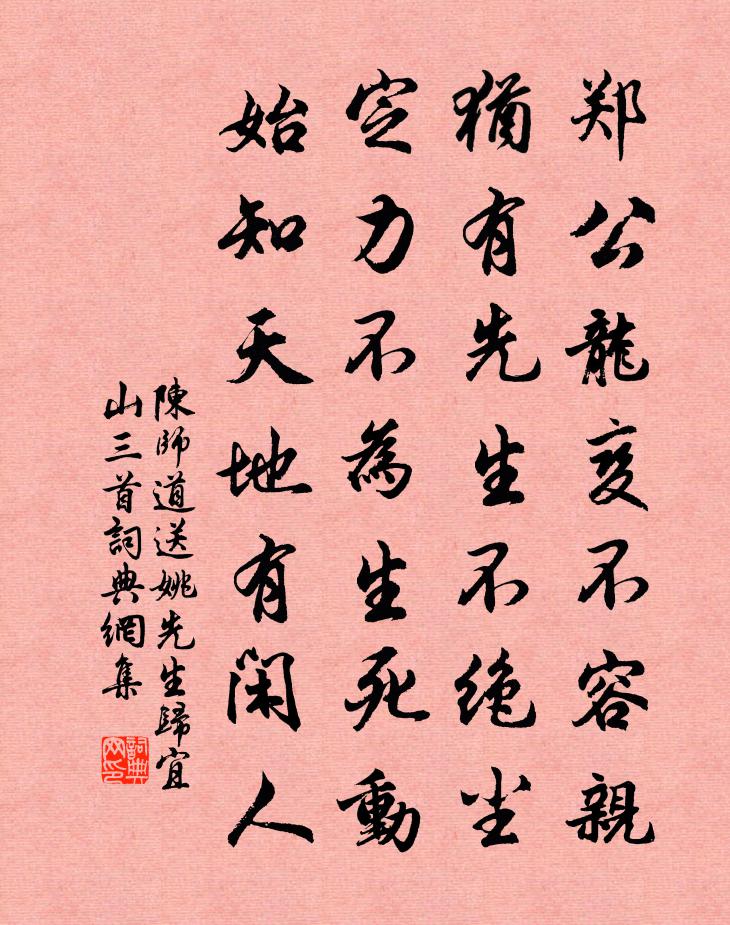 郑公龍变不容親
猶有先生不絶尘
定力不為生死動
始知天地有闲人
陳師道送姚先生歸宜
山三首詞典網集
詞典网印